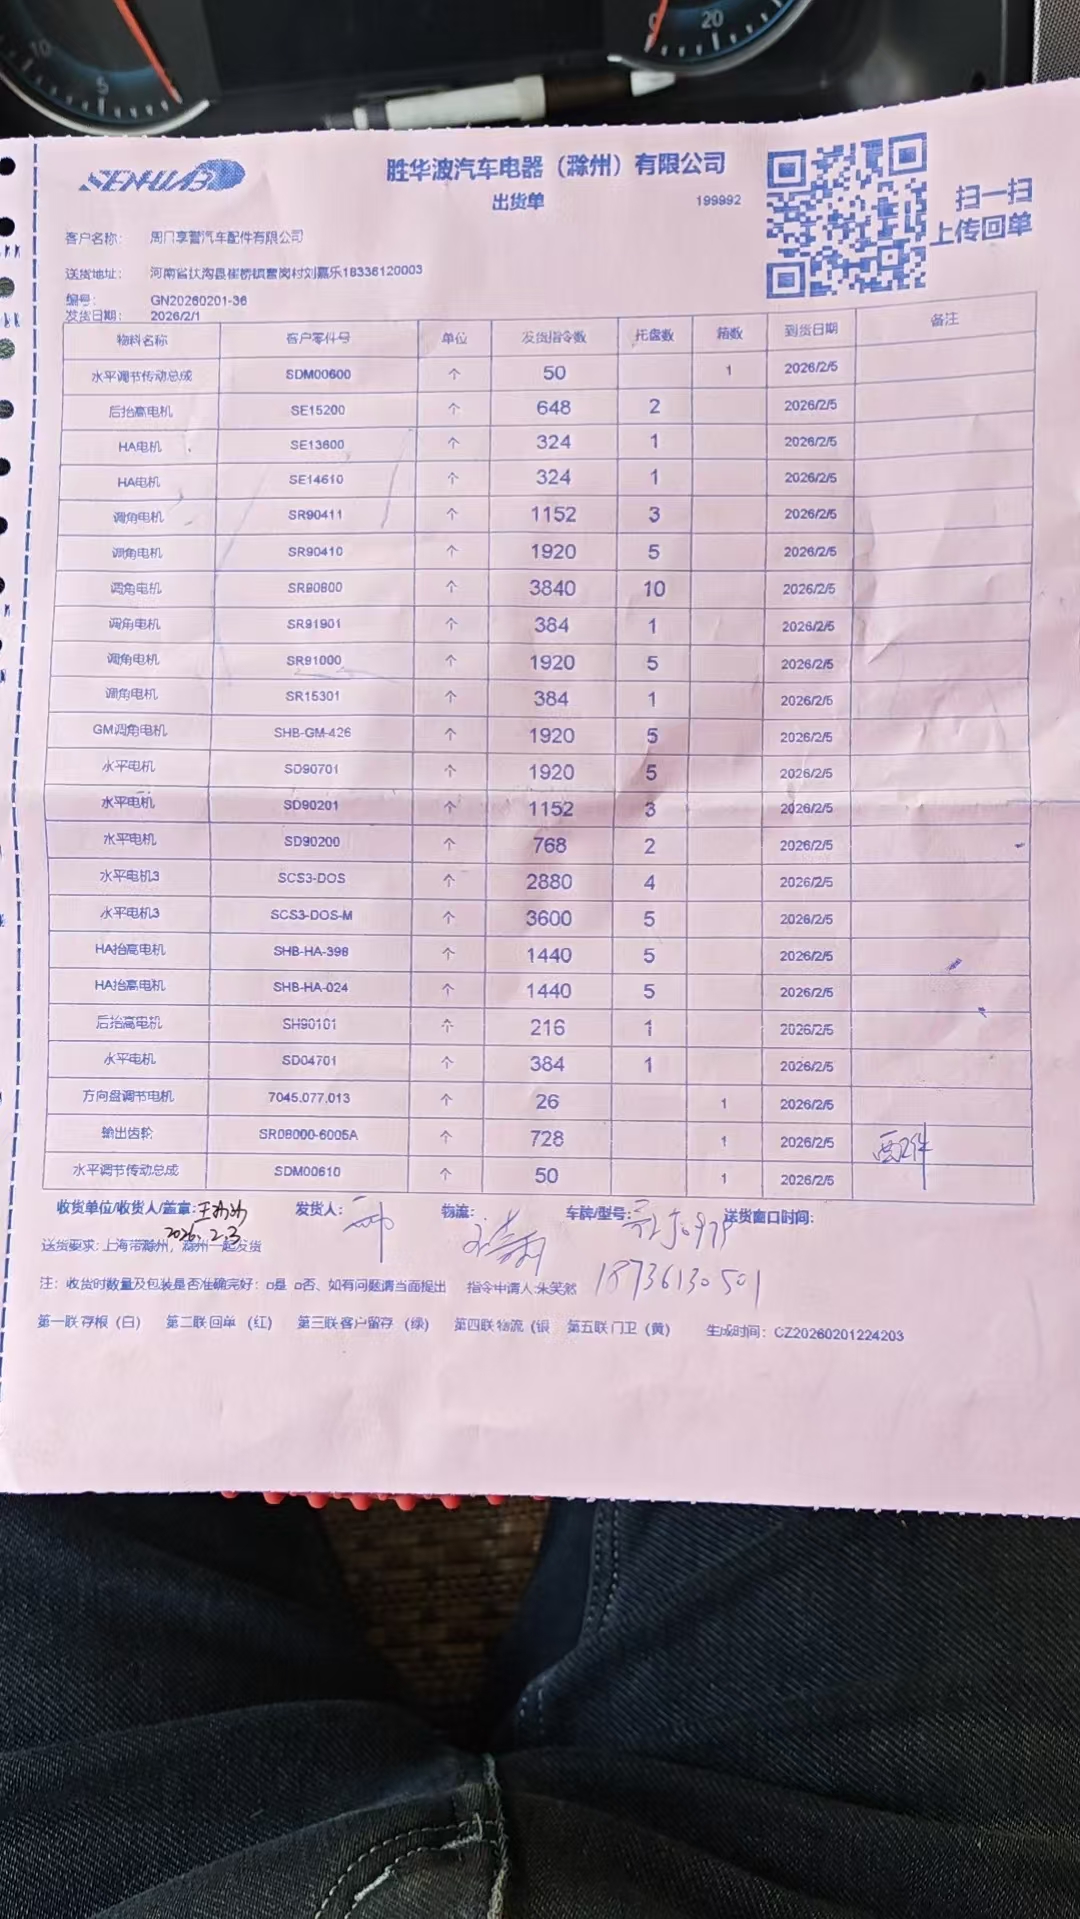 10
5
0
20
SENHUABO
胜华波汽车电器（滁州）有限公司
出货单
199992
扫一扫
上传回单
客户名称： 周口享誉汽车配件有限公司
送货地址： 河南省扶沟县崔桥镇曹岗村刘嘉乐18336120003
编号： GN20260201-36
发货日期： 2026/2/1
物料名称 客户零件号 单位 发货指令数 托盘数 箱数 到货日期 备注
水平调节传动总成 SDM00600 个 50 1 2026/2/5
后抬高电机 SE15200 个 648 2 2026/2/5
HA电机 SE13600 个 324 1 2026/2/5
HA电机 SE14610 个 324 1 2026/2/5
调角电机 SR90411 个 1152 3 2026/2/5
调角电机 SR90410 个 1920 5 2026/2/5
调角电机 SR90800 个 3840 10 2026/2/5
调角电机 SR91901 个 384 1 2026/2/5
调角电机 SR91000 个 1920 5 2026/2/5
调角电机 SR15301 个 384 1 2026/2/5
GM调角电机 SHB-GM-426 个 1920 5 2026/2/5
水平电机 SD90701 个 1920 5 2026/2/5
水平电机 SD90201 个 1152 3 2026/2/5
水平电机 SD90200 个 768 2 2026/2/5
水平电机3 SCS3-DOS 个 2880 4 2026/2/5
水平电机3 SCS3-DOS-M 个 3600 5 2026/2/5
HA抬高电机 SHB-HA-398 个 1440 5 2026/2/5
HA抬高电机 SHB-HA-024 个 1440 5 2026/2/5
后抬高电机 SH90101 个 216 1 2026/2/5
水平电机 SD04701 个 384 1 2026/2/5
方向盘调节电机 7045.077.013 个 26 1 2026/2/5
输出齿轮 SR08000-6005A 个 728 1 2026/2/5
水平调节传动总成 SDM00610 个 50 1 2026/2/5
收货单位/收货人/盖章： 发货人： 物流： 车牌/型号： 送货窗口时间：
2026.2.3
送货要求：上海带滁州，滁州一起发货
注：收货时数量及包装是否准确完好：□是 □否、如有问题请当面提出 指令申请人:朱笑然 18736130501
第一联 存根（白） 第二联 回单（红） 第三联 客户留存（绿） 第四联 物流（银 第五联 门卫（黄） 生成时间：CZ20260201224203